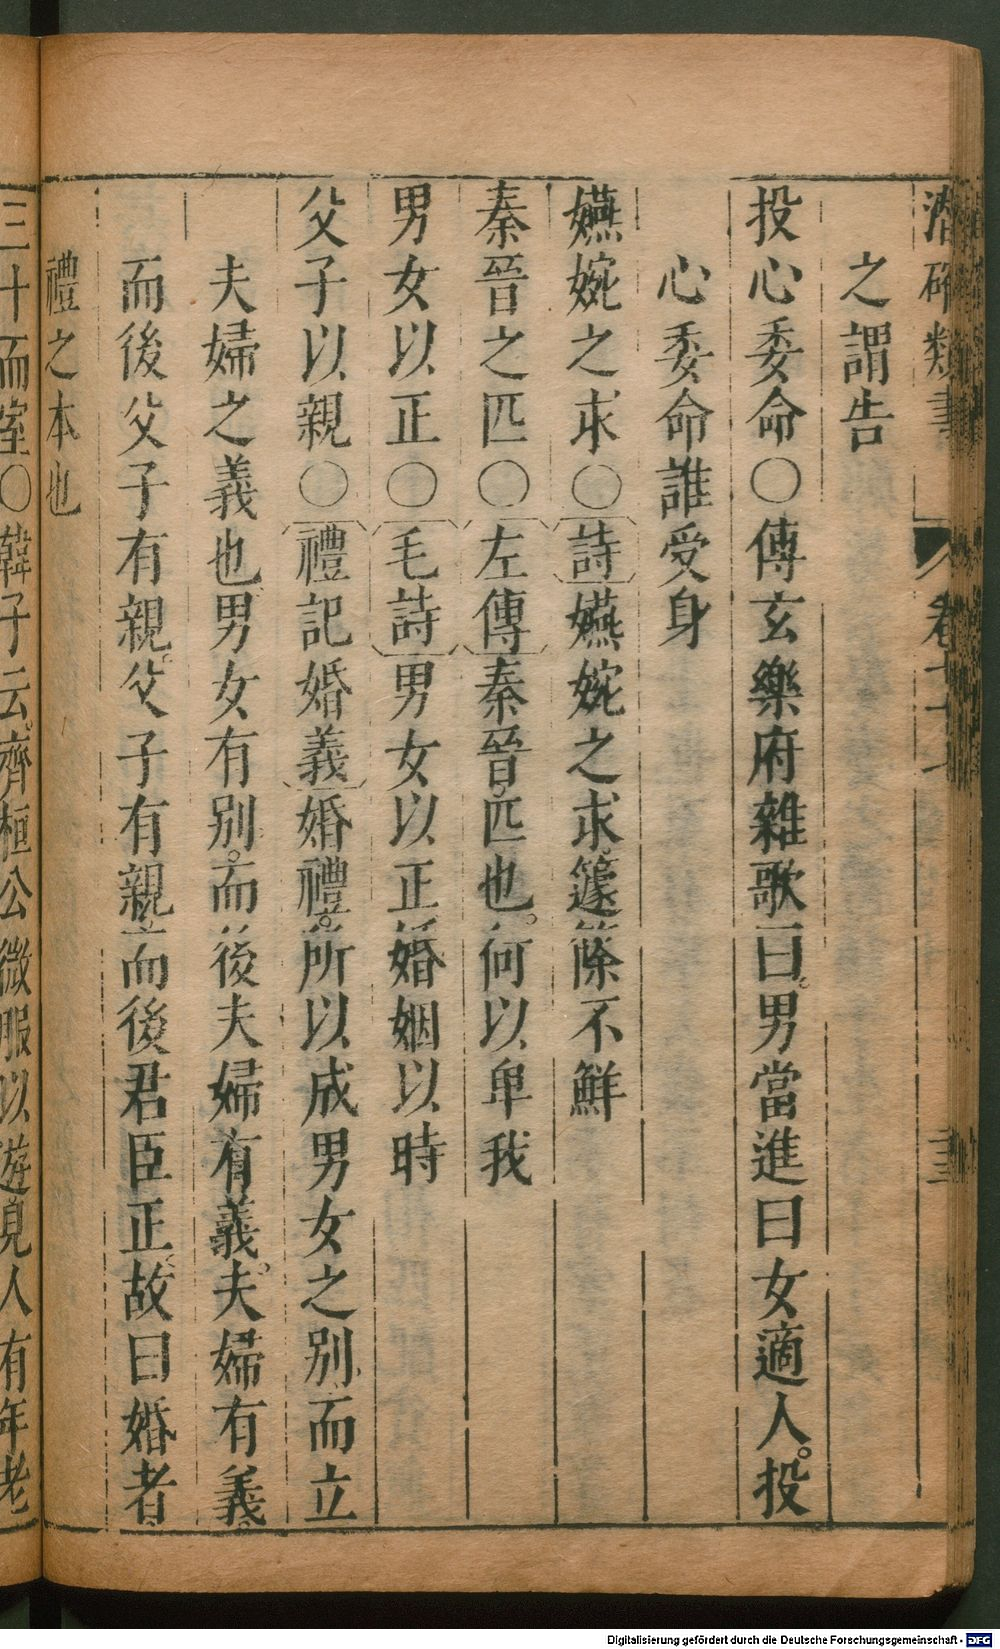 潛確類書 卷
之謂告
投心委命○傅玄樂府雜歌曰男當進曰女適人投
心委命誰受身
嬿婉之求○詩嬿婉之求籧篨不鮮
秦晉之匹○左傳秦晉匹也何以卑我
男女以正○毛詩男女以正婚姻以時
父子以親○禮記婚義婚禮所以成男女之別而立
夫婦之義也男女有別而後夫婦有義夫婦有義
而後父子有親父子有親而後君臣正故曰婚者
禮之本也
三十而室○韓子云齊桓公微服以遊見人有年老
Digitalisierung gefördert durch die Deutsche Forschungsgemeinschaft - DFG